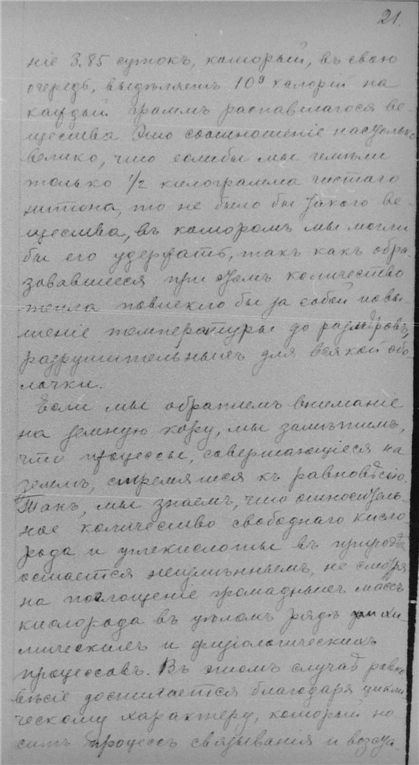 21.
ніе 3.85 сутокъ, который, въ свою
очередь, выдѣляетъ 10⁹ калорій на
каждый граммъ распавшагося ве-
щества. Это соотношеніе настолько
велико, что еслибы мы имѣли
только ½ килограмма чистаго
нитона, то не было бы такого ве-
щества, въ которомъ мы могли
бы его удержать, такъ какъ обра-
зовавшееся при этомъ количество
тепла повлекло бы за собой повы-
шеніе температуры до размѣровъ,
разрушительныхъ для всякой обо-
лочки.
Если мы обратимъ вниманіе
на земную кору, мы замѣтимъ,
что процессы, совершающіеся на
землѣ, стремятся къ равновѣсію.
Такъ, мы знаемъ, что относитель-
ное количество свободнаго кисло-
рода и углекислоты въ природѣ
остается неизмѣннымъ, не смотря
на поглощеніе громадныхъ массъ
кислорода въ цѣломъ рядѣ хи-
мическихъ и физіологическихъ
процессовъ. Въ этомъ случаѣ равно-
вѣсіе достигается благодаря цикли-
ческому характеру, который но-
ситъ процессъ связыванія и возст